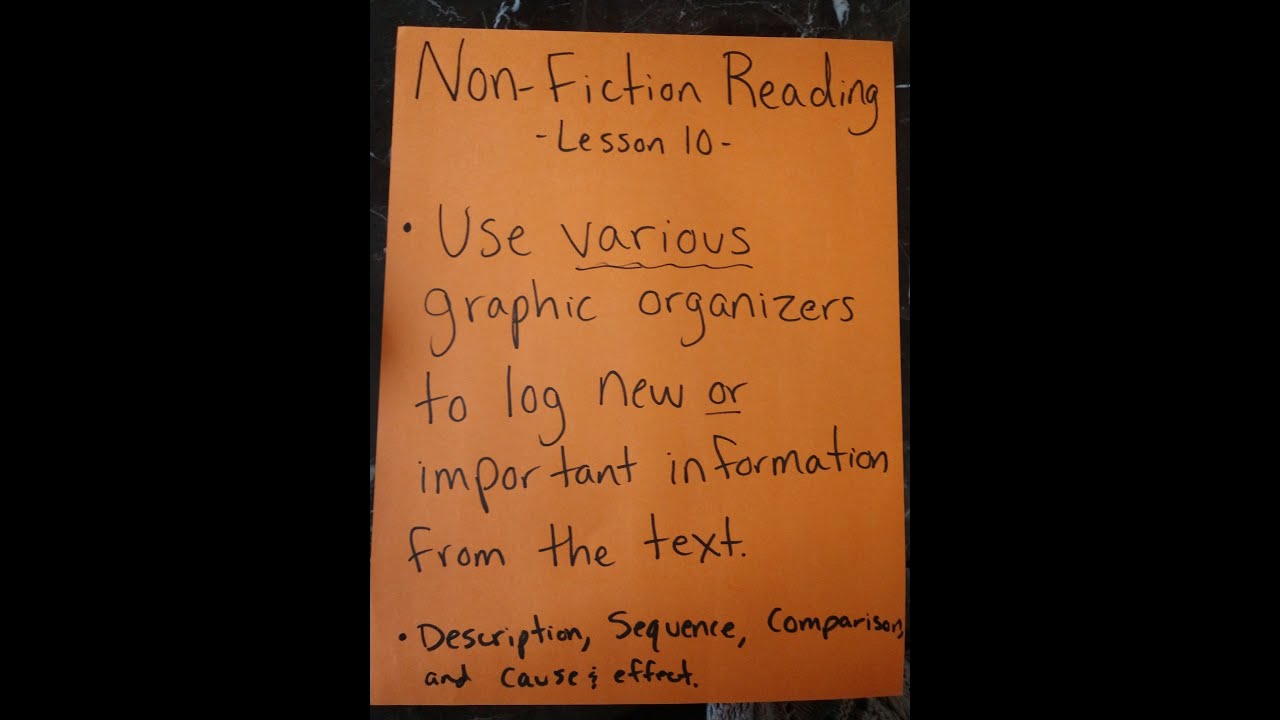 Non-Fiction Reading
- Lesson 10 -
• Use various
graphic organizers
to log new or
important information
from the text.
• Description, Sequence, Comparison,
and cause & effect.